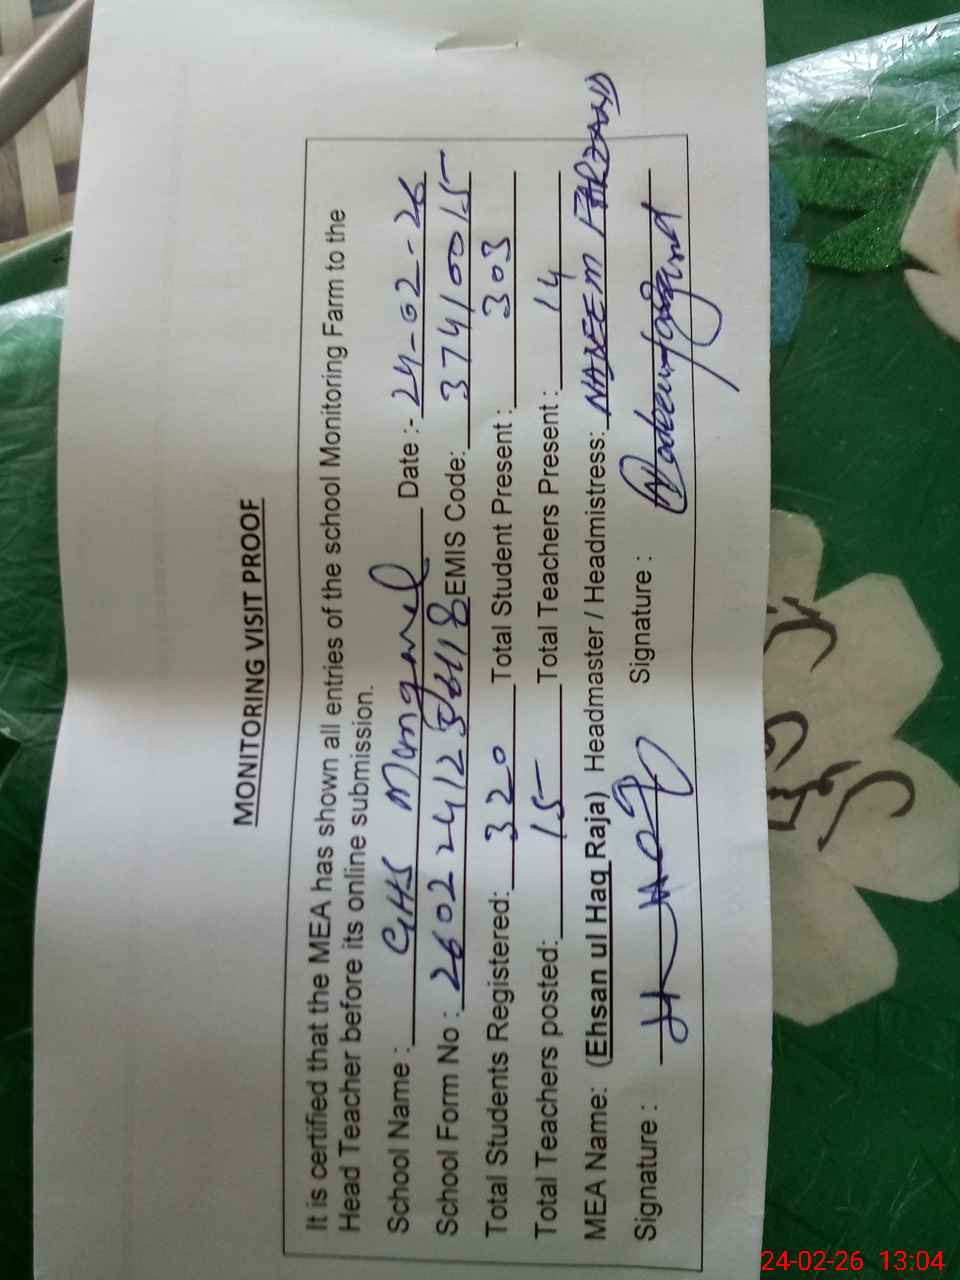 MONITORING VISIT PROOF
It is certified that the MEA has shown all entries of the school Monitoring Farm to the
Head Teacher before its online submission.
School Name : GHS Mangowal Date :- 24-02-26
School Form No : 260224123 EMIS Code: 37410015
Total Students Registered: 320 Total Student Present : 303
Total Teachers posted: 15 Total Teachers Present : 14
MEA Name: (Ehsan ul Haq Raja) Headmaster / Headmistress: NADEEM FARZAND
Signature : Signature : Nadeem Farzand
24-02-26 13:04